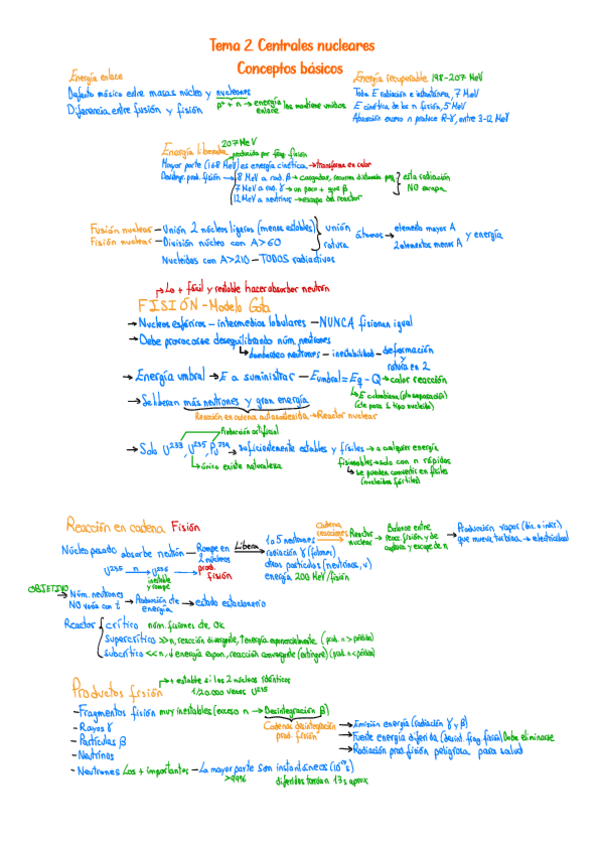 Tema 2. Centrales nucleares
Conceptos básicos
Energía enlace
Defecto másico entre masas núcleo y nucleones
p⁺ + n → energía enlace los mantiene unidos
Diferencia entre fusión y fisión
Energía recuperable 198-207 MeV
Toda E radiación e instantánea, 7 MeV
E cinética de los n fisión, 5 MeV
Absorción exceso n produce R-γ, entre 3-12 MeV
Energía liberada 207 MeV
producida por frag. fisión
Mayor parte (168 MeV) es energía cinética → transforma en calor
Desintegr. prod. fisión → 8 MeV a rad. β → cargadas, recorren distancia peq
7 MeV a rad. γ → un poco + que β
esta radiación NO escapa
12 MeV a neutrinos → escapa del reactor
Fusión nuclear — Unión 2 núcleos ligeros (menos estables)
Fisión nuclear — División núcleo con A>60
unión
rotura
átomos → elemento mayor A
2 elementos menor A
y energía
Nucleidos con A>210 — TODOS radiactivos
↳ Lo + fácil y rentable hacer absorber neutrón
FISIÓN - Modelo Gota
→ Núcleos esféricos — intermedios lobulares — NUNCA fisionan igual
→ Debe provocarse desequilibrando núm. neutrones
↳ bombardeo neutrones — inestabilidad — deformación
rotura en 2
→ Energía umbral → E a suministrar — Eumbral = Eq - Q → calor reacción
↳ E culombiana (pto separación)
(cte para c. tipo nucleido)
→ Se liberan más neutrones y gran energía
Reacción en cadena autosostenida → Reactor nuclear
Producción artificial
→ Solo U²³³, U²³⁵, Pu²³⁹ → suficientemente estables y físiles → a cualquier energía
↳ único existe naturaleza
fisionables → solo con n rápidos
↳ se pueden convertir en físiles
(nucleidos fértiles)
Reacción en cadena Fisión
Núcleo pesado absorbe neutrón — Rompe en 2 núcleos prod. fisión
U²³⁵ n → U²³⁶ →
inestable y rompe
Libera
1 o 5 neutrones
radiación γ (fotones)
otras partículas (neutrinos, ν)
energía 200 MeV/fisión
Cadena reacciones → Reactor nuclear → Balance entre reac. fisión y de captura y escape de n
→ Producción vapor (dir. o indir.)
que mueve turbina → electricidad
OBJETIVO
→ Núm. neutrones NO varía con t → Producción cte energía → estado estacionario
Reactor
crítico núm. fisiones cte. Ok
supercrítico >> n, reacción divergente, ↑ energía exponencialmente (prod. n > pérdidas)
subcrítico << n, ↓ energía expon., reacción convergente (extingue) (prod. n < pérdidas)
Productos fisión
↳ + estable si los 2 núcleos idénticos
1/20.000 veces U²³⁵
- Fragmentos fisión muy inestables (exceso n → Desintegración β)
Cadenas desintegración prod. fisión
→ Emisión energía (radiación γ y β)
→ Fuente energía diferida (desint. frag. fisión) Debe eliminarse
→ Radiación prod. fisión peligrosa para salud
- Rayos γ
- Partículas β
- Neutrinos
- Neutrones Los + importantes — La mayor parte son instantáneos
>99%
diferidos tardan 13 s aprox